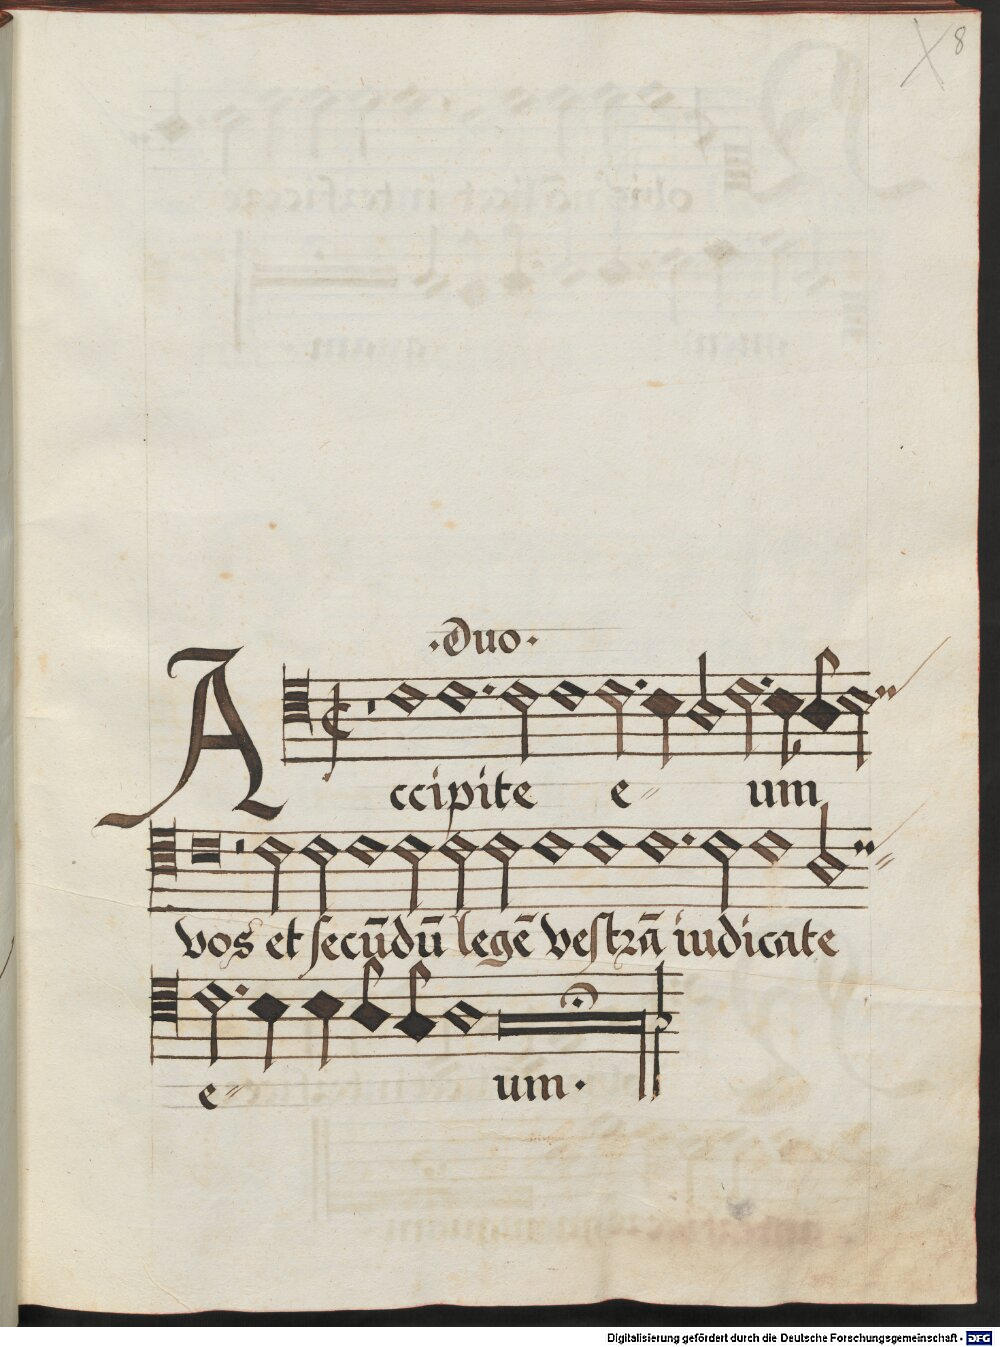 8
·Duo·
Accipite e um
vos et secūdū legē vestrā iudicate
e um·
Digitalisierung gefördert durch die Deutsche Forschungsgemeinschaft - DFG